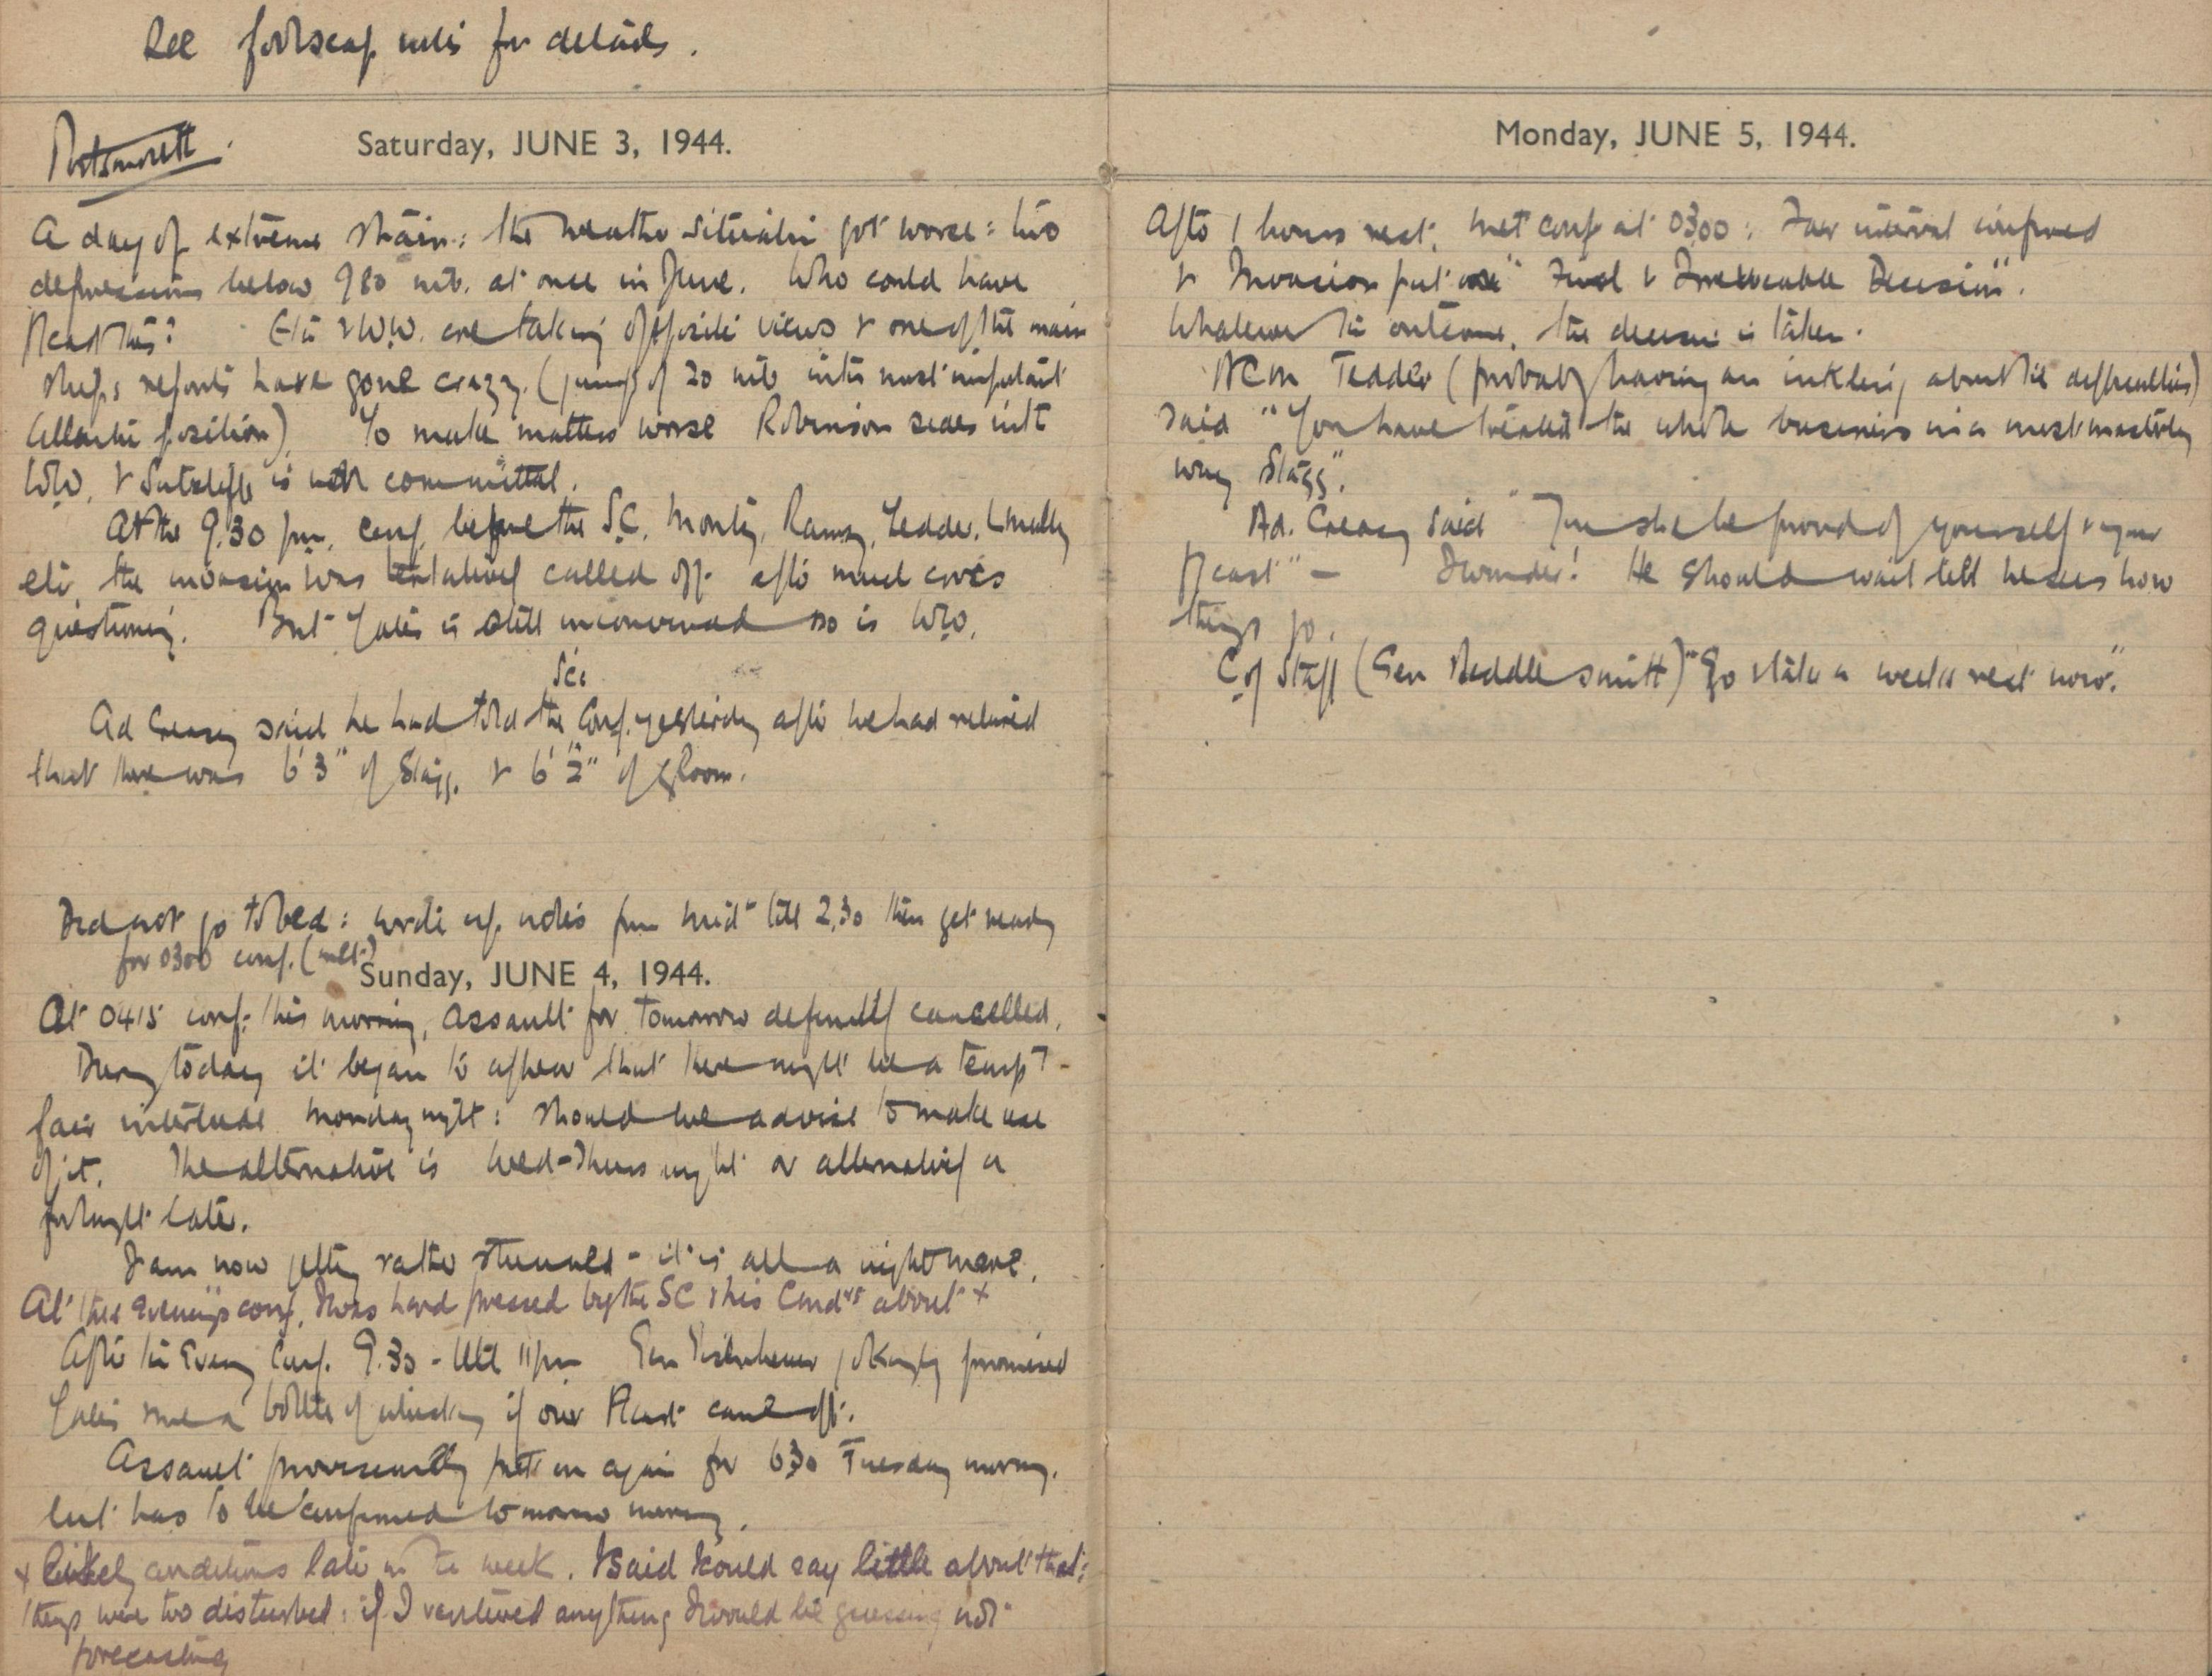 See foolscap notes for details.
Portsmouth.
Saturday, JUNE 3, 1944.
A day of extreme strain: the weather situation got worse: two
depressions below 980 mb. at once in June. Who could have
fcast this? Etn & W.W. are taking opposite views & one of the main
ships reports have gone crazy. (jump of 20 mb in the most important
Atlantic position). To make matters worse Robinson sides with
W.W, & Sutcliffe is non committal.
At the 9.30 pm. conf. before the S.C. Monty, Ramsay, Tedder, L-Mallory
etc, the invasion was tentatively called off after much cross
questioning. But Yates is still unconvinced so is WW.
Ad Creasy said he had told the SC's Conf. yesterday after he had retired
that there was 6'3" of Stagg & 6'2" of gloom.
Did not go to bed: wrote up notes from mid-t till 2.30 then get ready
for 0300 conf. (met.)
Sunday, JUNE 4, 1944.
At 0415 conf. this morning, assault for tomorrow definitely cancelled.
During today it began to appear that there might be a temp
fair interlude Monday night: should we advise to make use
of it. The alternative is Wed-Thurs night or alternatively a
fortnight later.
I am now getting rather stunned - it is all a nightmare.
At this evening's conf, I was hard pressed by the SC & his Comdrs about +
After the Evening Conf. 9.30 - till 11 pm Gen Eisenhower jokingly promised
Yates & me a bottle of whisky if our Fcast came off.
Assault provisionally put on again for 630 Tuesday morning.
but has to be confirmed tomorrow morning.
+ likely conditions later in the week. I said I could say little about that:
things were too disturbed: if I ventured anything I would be guessing not
forecasting
Monday, JUNE 5, 1944.
After 1 hours rest, met conf at 0300: Fair interval confirmed
& Invasion put on "Final & Irrevocable Decision".
Whatever the outcome, the decision is taken.
ACM Tedder (probably having an inkling about the difficulties)
said "You have treated the whole business in a most masterly
way Stagg".
Ad. Creasy said "You shd be proud of yourself & your
fcast" - I wonder! He should wait till he sees how
things go.
C of Staff (Gen Beddell Smith) "Go & take a week's rest now."